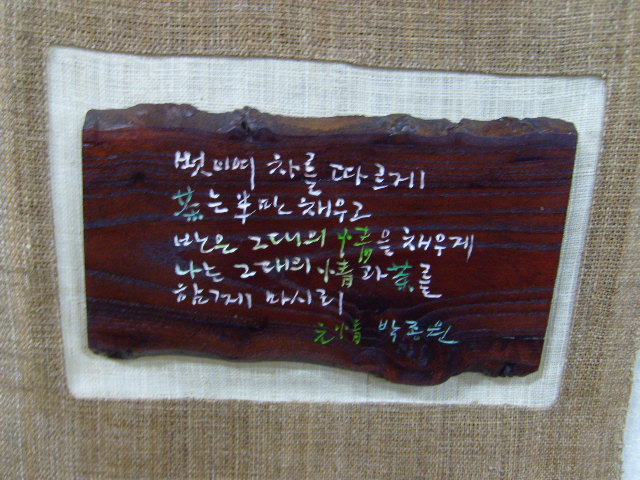 벗이여 차를 따르게
茶는 半만 채우고
반은 그대의 情을 채우게
나는 그대의 情과 茶를
함께 마시리
元情 박종원